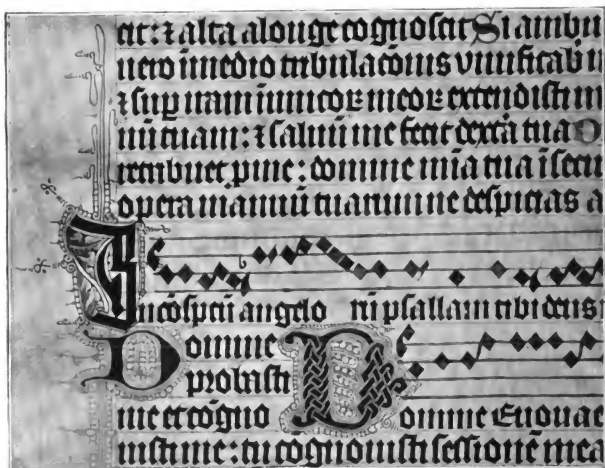 cit: ⁊ alta a longe cognoscit Si ambu
uero ī medio tribulacōnis viuificab m
⁊ suꝑ iram inimicoꝝ meoꝝ extendisti m
nū tuam: ⁊ saluū me fecit dext̄a tua D
retribuet ꝓ me: domine mīa tua ī secu
opera manuū tuarum ne despicias a
In cōspcū angelo rū psallam tibi deus
Domine
probasti
me et cogno Domine Euouae
uisti me: tu cognouisti sessionē mea